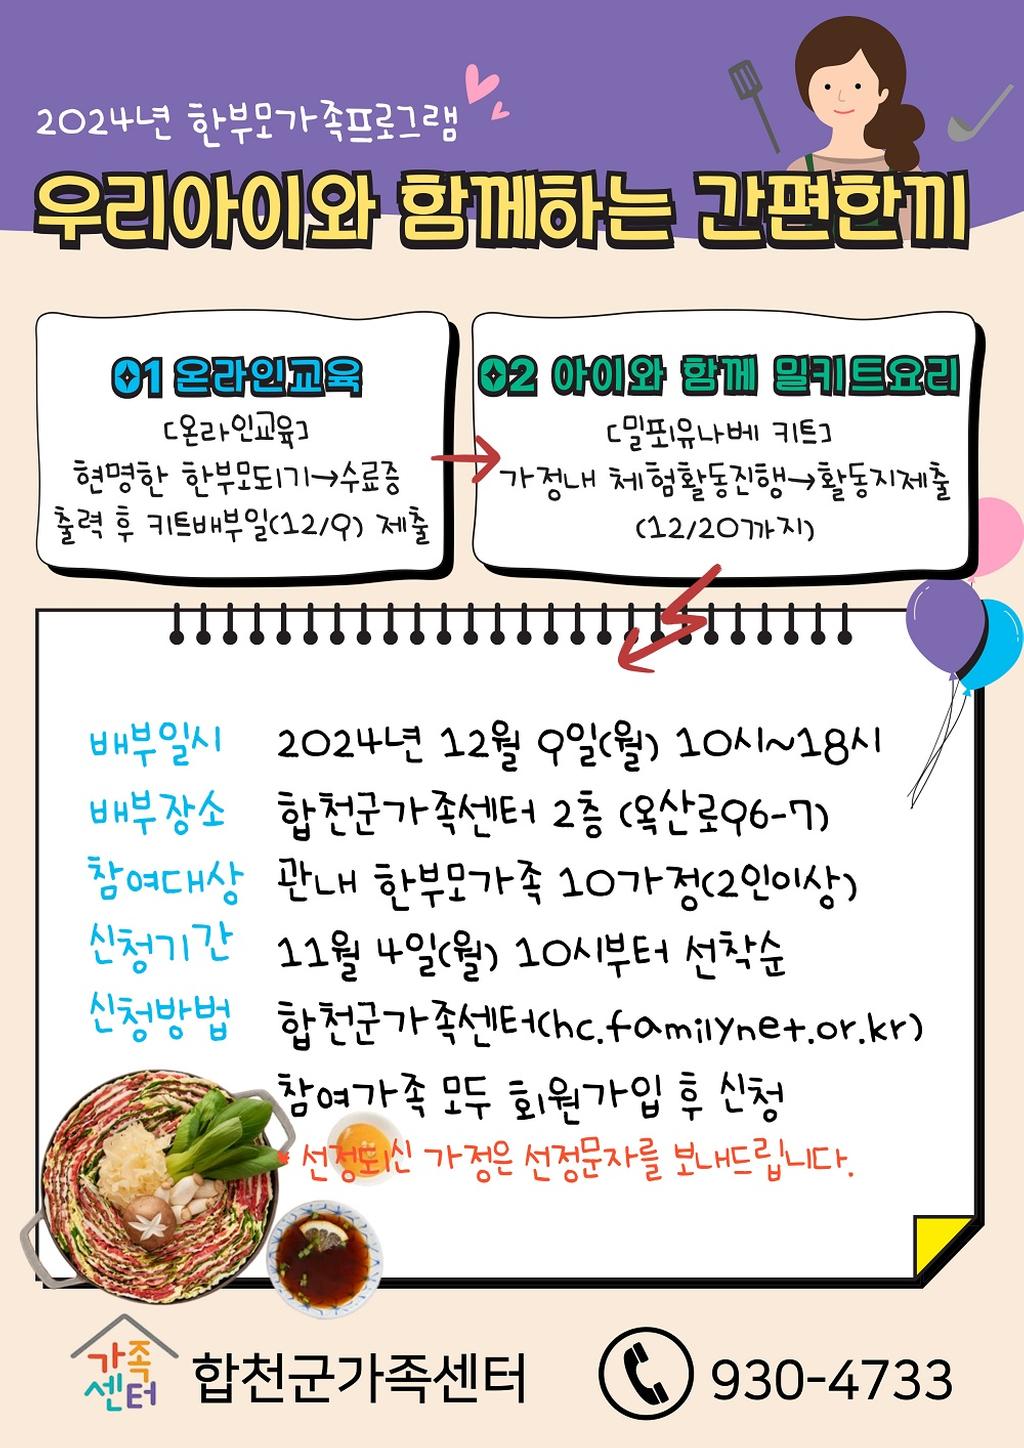 2024년 한부모가족프로그램
우리아이와 함께하는 간편한끼
01 온라인교육
[온라인교육]
현명한 한부모되기→수료증
출력 후 키트배부일(12/9) 제출
02 아이와 함께 밀키트요리
[밀푀유나베 키트]
가정내 체험활동진행→활동지제출
(12/20까지)
배부일시 2024년 12월 9일(월) 10시~18시
배부장소 합천군가족센터 2층 (옥산로96-7)
참여대상 관내 한부모가족 10가정(2인이상)
신청기간 11월 4일(월) 10시부터 선착순
신청방법 합천군가족센터(hc.familynet.or.kr)
참여가족 모두 회원가입 후 신청
* 선정되신 가정은 선정문자를 보내드립니다.
가족
센터
합천군가족센터 930-4733